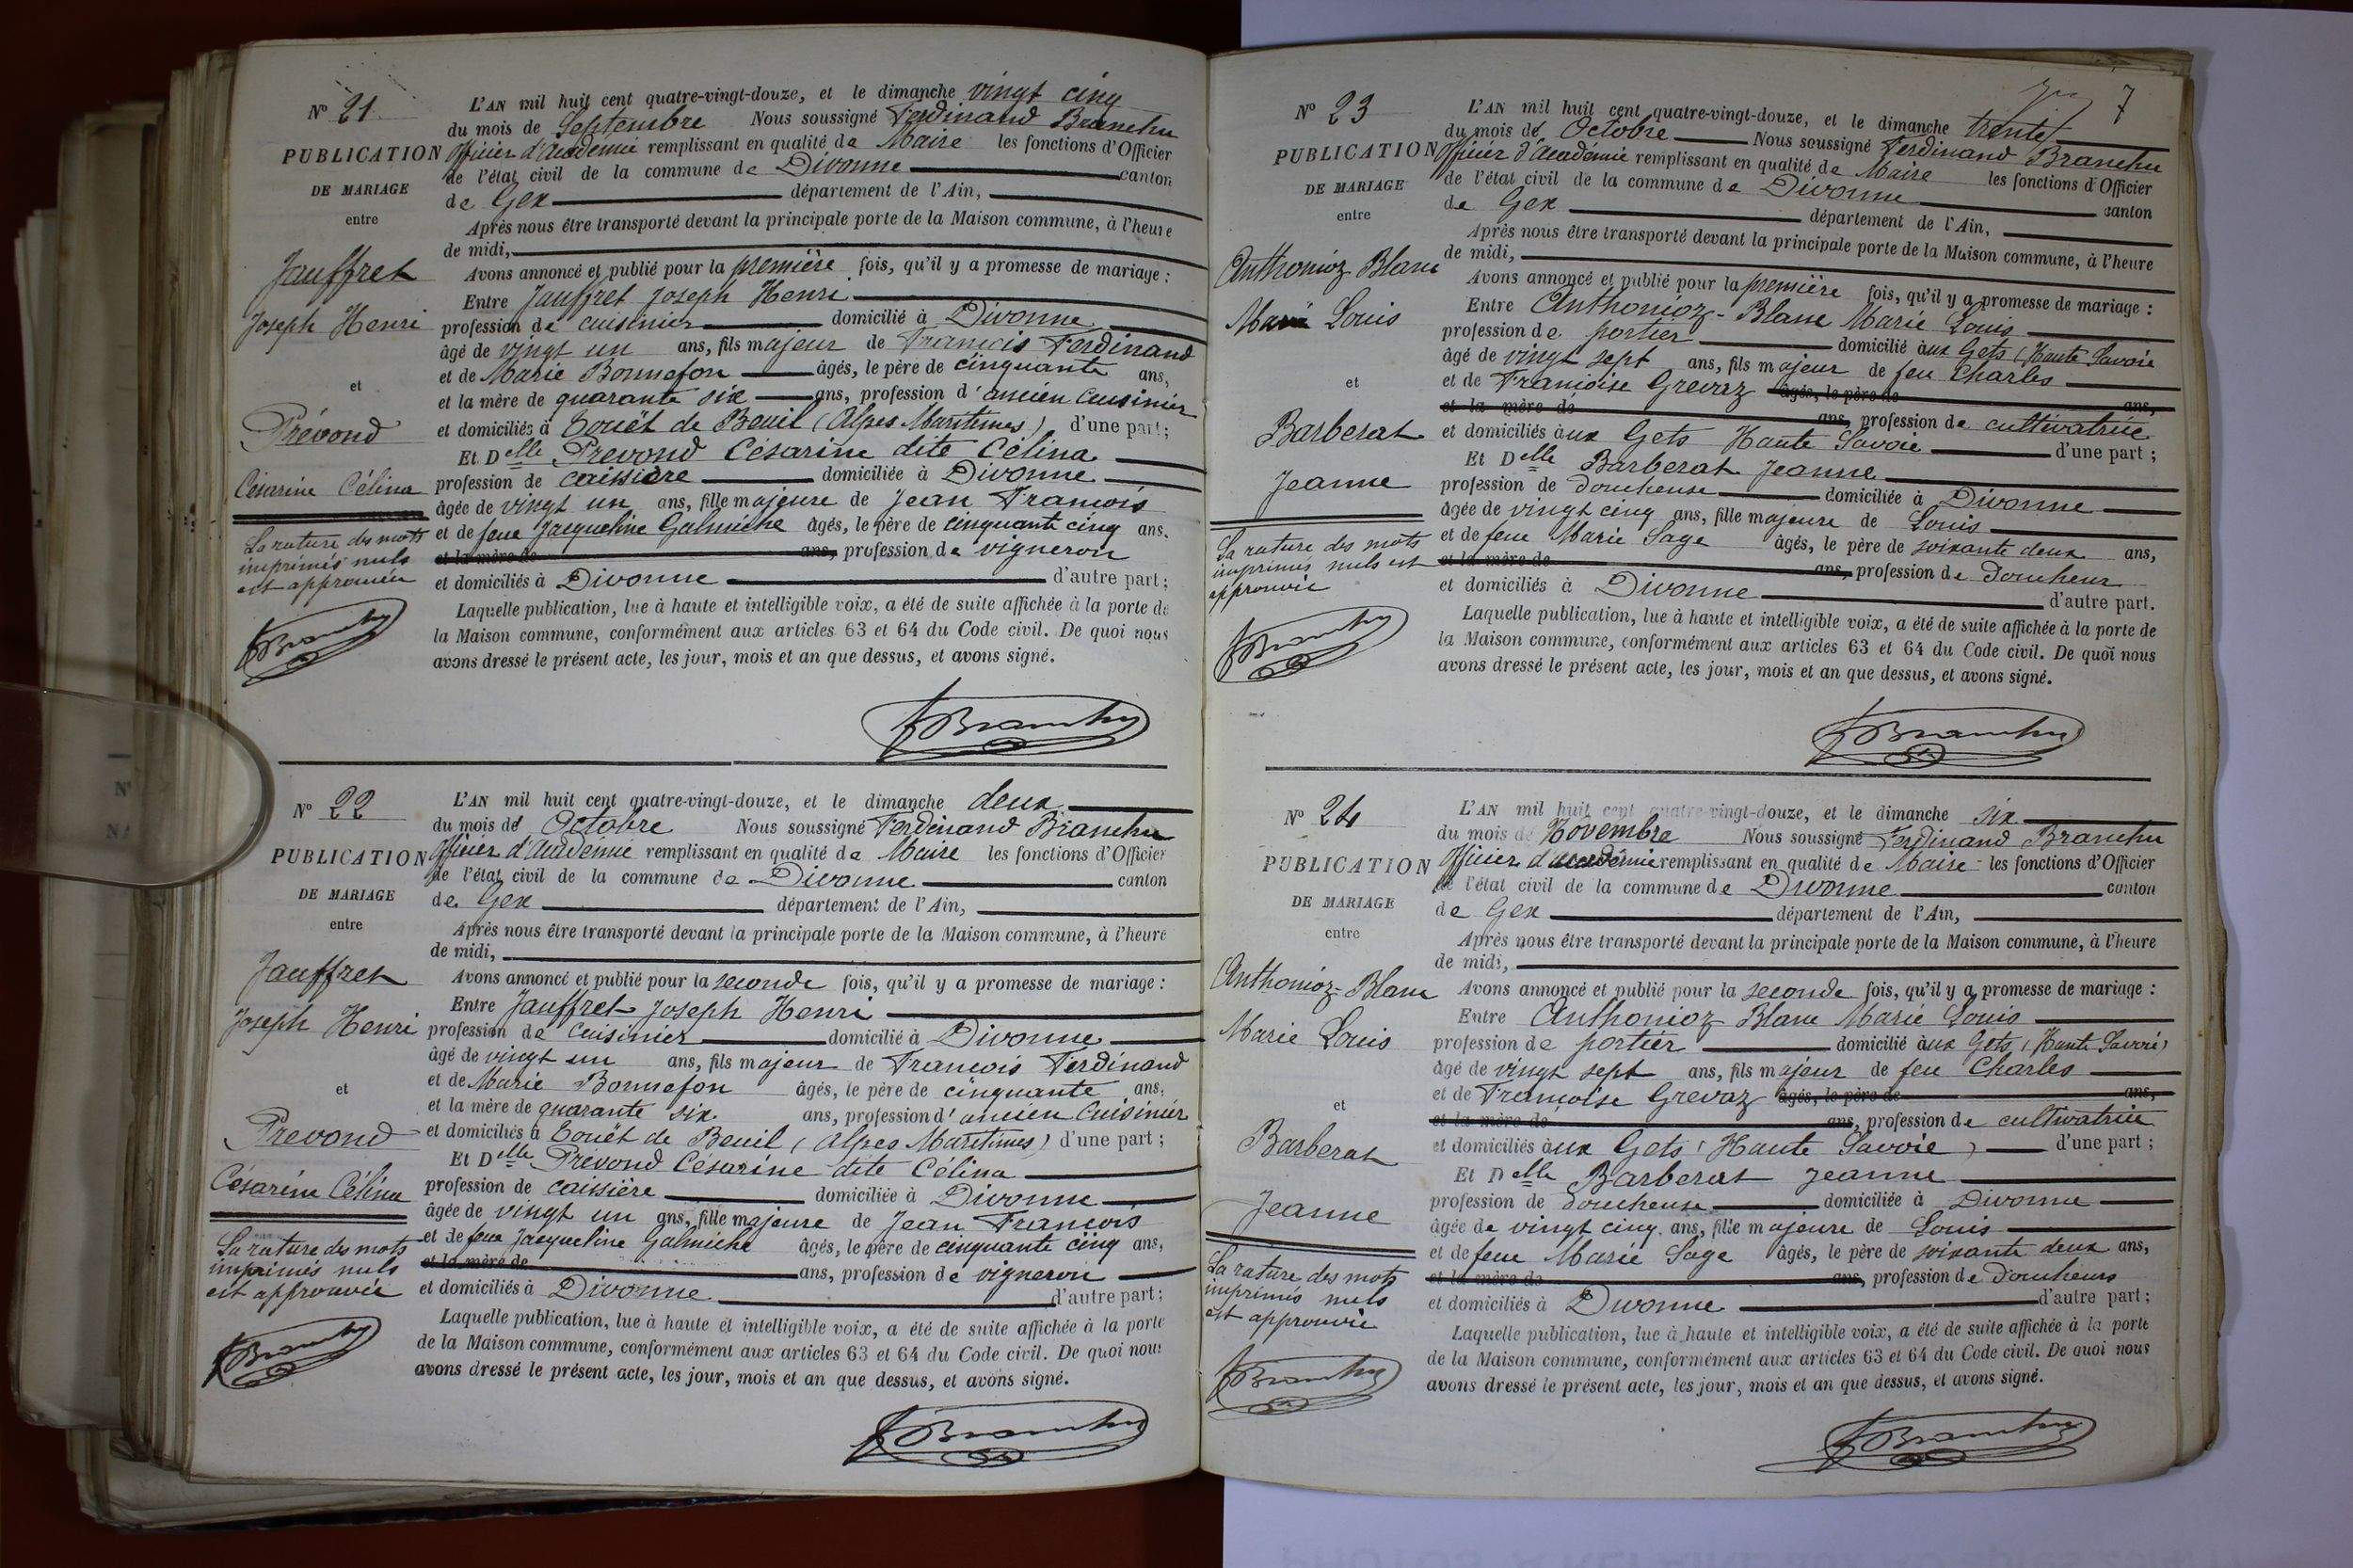 N° 21
PUBLICATION
DE MARIAGE
entre
Jauffret
Joseph Henri
et
Prévond
Césarine Célina
La rature des mots
imprimés nuls
est approuvée
L'AN mil huit cent quatre-vingt-douze, et le dimanche vingt cinq
du mois de Septembre Nous soussigné Ferdinand Branchu
Officier d'Académie remplissant en qualité de Maire les fonctions d'Officier
de l'état civil de la commune de Divonne canton
de Gex département de l'Ain,
Après nous être transporté devant la principale porte de la Maison commune, à l'heure
de midi,
Avons annoncé et publié pour la première fois, qu'il y a promesse de mariage :
Entre Jauffret Joseph Henri
profession de cuisinier domicilié à Divonne
âgé de vingt un ans, fils majeur de François Ferdinand
et de Marie Bonnefon âgés, le père de cinquante ans,
et la mère de quarante six ans, profession d'ancien cuisinier
et domiciliés à Touët de Beuil (Alpes Maritimes) d'une part;
Et Delle Prevond Césarine dite Célina
profession de caissière domiciliée à Divonne
âgée de vingt un ans, fille majeure de Jean François
et de feue Jacqueline Galmiche âgés, le père de cinquante cinq ans.
et la mère de ans, profession de vigneron
et domiciliés à Divonne d'autre part;
Laquelle publication, lue à haute et intelligible voix, a été de suite affichée à la porte de
la Maison commune, conformément aux articles 63 et 64 du Code civil. De quoi nous
avons dressé le présent acte, les jour, mois et an que dessus, et avons signé.
FBranchu
N° 22
PUBLICATION
DE MARIAGE
entre
Jauffret
Joseph Henri
et
Prevond
Césarine Célina
La rature des mots
imprimés nuls
est approuvée
L'AN mil huit cent quatre-vingt-douze, et le dimanche deux
du mois de Octobre Nous soussigné Ferdinand Branchu
Officier d'Académie remplissant en qualité de Maire les fonctions d'Officier
de l'état civil de la commune de Divonne canton
de Gex département de l'Ain,
Après nous être transporté devant la principale porte de la Maison commune, à l'heure
de midi,
Avons annoncé et publié pour la seconde fois, qu'il y a promesse de mariage :
Entre Jauffret Joseph Henri
profession de cuisinier domicilié à Divonne
âgé de vingt un ans, fils majeur de François Ferdinand
et de Marie Bonnefon âgés, le père de cinquante ans,
et la mère de quarante six ans, profession d'ancien cuisinier
et domiciliés à Touët de Beuil (Alpes Maritimes) d'une part ;
Et Delle Prévond Césarine dite Célina
profession de caissière domiciliée à Divonne
âgée de vingt un ans, fille majeure de Jean François
et de feue Jacqueline Galmiche âgés, le père de cinquante cinq ans,
et la mère de ans, profession de vigneron
et domiciliés à Divonne d'autre part;
Laquelle publication, lue à haute et intelligible voix, a été de suite affichée à la porte
de la Maison commune, conformément aux articles 63 et 64 du Code civil. De quoi nous
avons dressé le présent acte, les jour, mois et an que dessus, et avons signé.
FBranchu
7
N° 23
PUBLICATION
DE MARIAGE
entre
Anthonioz Blanc
Marie Louis
et
Barberat
Jeanne
La rature des mots
imprimés nuls est
approuvée
L'AN mil huit cent quatre-vingt-douze, et le dimanche trente
du mois de Octobre Nous soussigné Ferdinand Branchu
Officier d'Académie remplissant en qualité de Maire les fonctions d'Officier
de l'état civil de la commune de Divonne canton
de Gex département de l'Ain,
Après nous être transporté devant la principale porte de la Maison commune, à l'heure
de midi,
Avons annoncé et publié pour la première fois, qu'il y a promesse de mariage :
Entre Anthonioz-Blanc Marie Louis
profession de portier domicilié aux Gets (Haute Savoie
âgé de vingt sept ans, fils majeur de feu Charles
et de Françoise Grevaz âgés, le père de ans,
et la mère de ans, profession de cultivatrice
et domiciliés aux Gets Haute Savoie d'une part ;
Et Delle Barberat Jeanne
profession de doucheuse domiciliée à Divonne
âgée de vingt cinq ans, fille majeure de Louis
et de feue Marie Sage âgés, le père de soixante deux ans,
et la mère de ans, profession de doucheur
et domiciliés à Divonne d'autre part.
Laquelle publication, lue à haute et intelligible voix, a été de suite affichée à la porte de
la Maison commune, conformément aux articles 63 et 64 du Code civil. De quoi nous
avons dressé le présent acte, les jour, mois et an que dessus, et avons signé.
FBranchu
N° 24
PUBLICATION
DE MARIAGE
entre
Anthonioz-Blanc
Marie Louis
et
Barberat
Jeanne
La rature des mots
imprimés nuls
est approuvée
L'AN mil huit cent quatre-vingt-douze, et le dimanche six
du mois de Novembre Nous soussigné Ferdinand Branchu
Officier d'académie remplissant en qualité de Maire les fonctions d'Officier
de l'état civil de la commune de Divonne canton
de Gex département de l'Ain,
Après nous être transporté devant la principale porte de la Maison commune, à l'heure
de midi,
Avons annoncé et publié pour la seconde fois, qu'il y a promesse de mariage :
Entre Anthonioz Blanc Marie Louis
profession de portier domicilié aux Gets (Haute Savoie)
âgé de vingt sept ans, fils majeur de feu Charles
et de Françoise Grevaz âgés, le père de ans,
et la mère de ans, profession de cultivatrice
et domiciliés aux Gets (Haute Savoie) d'une part ;
Et Delle Barberat Jeanne
profession de doucheuse domiciliée à Divonne
âgée de vingt cinq ans, fille majeure de Louis
et de feue Marie Sage âgés, le père de soixante deux ans,
et la mère de ans, profession de doucheurs
et domiciliés à Divonne d'autre part ;
Laquelle publication, lue à haute et intelligible voix, a été de suite affichée à la porte
de la Maison commune, conformément aux articles 63 et 64 du Code civil. De quoi nous
avons dressé le présent acte, les jour, mois et an que dessus, et avons signé.
FBranchu